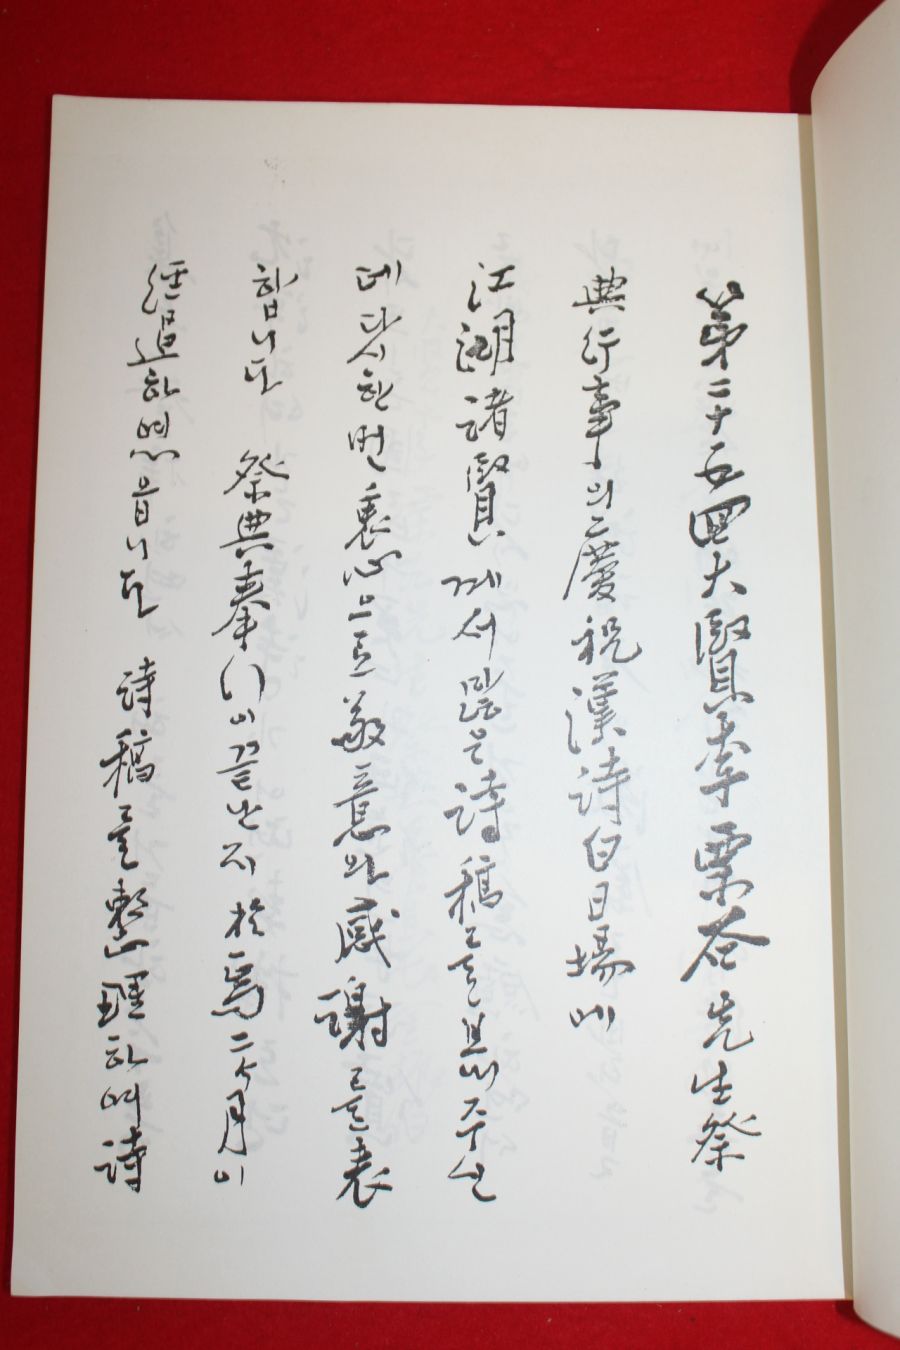 第二十五回大賢李栗谷先生祭
典行事의 慶祝漢詩白日場에
江湖諸賢께서 많은 詩稿를 보내주신
데 다시 한번 衷心으로 敬意와 感謝를 表
합니다 祭典奉行이 끝난지 於焉 二個月이
經過하였읍니다 詩稿를 整理하여 詩